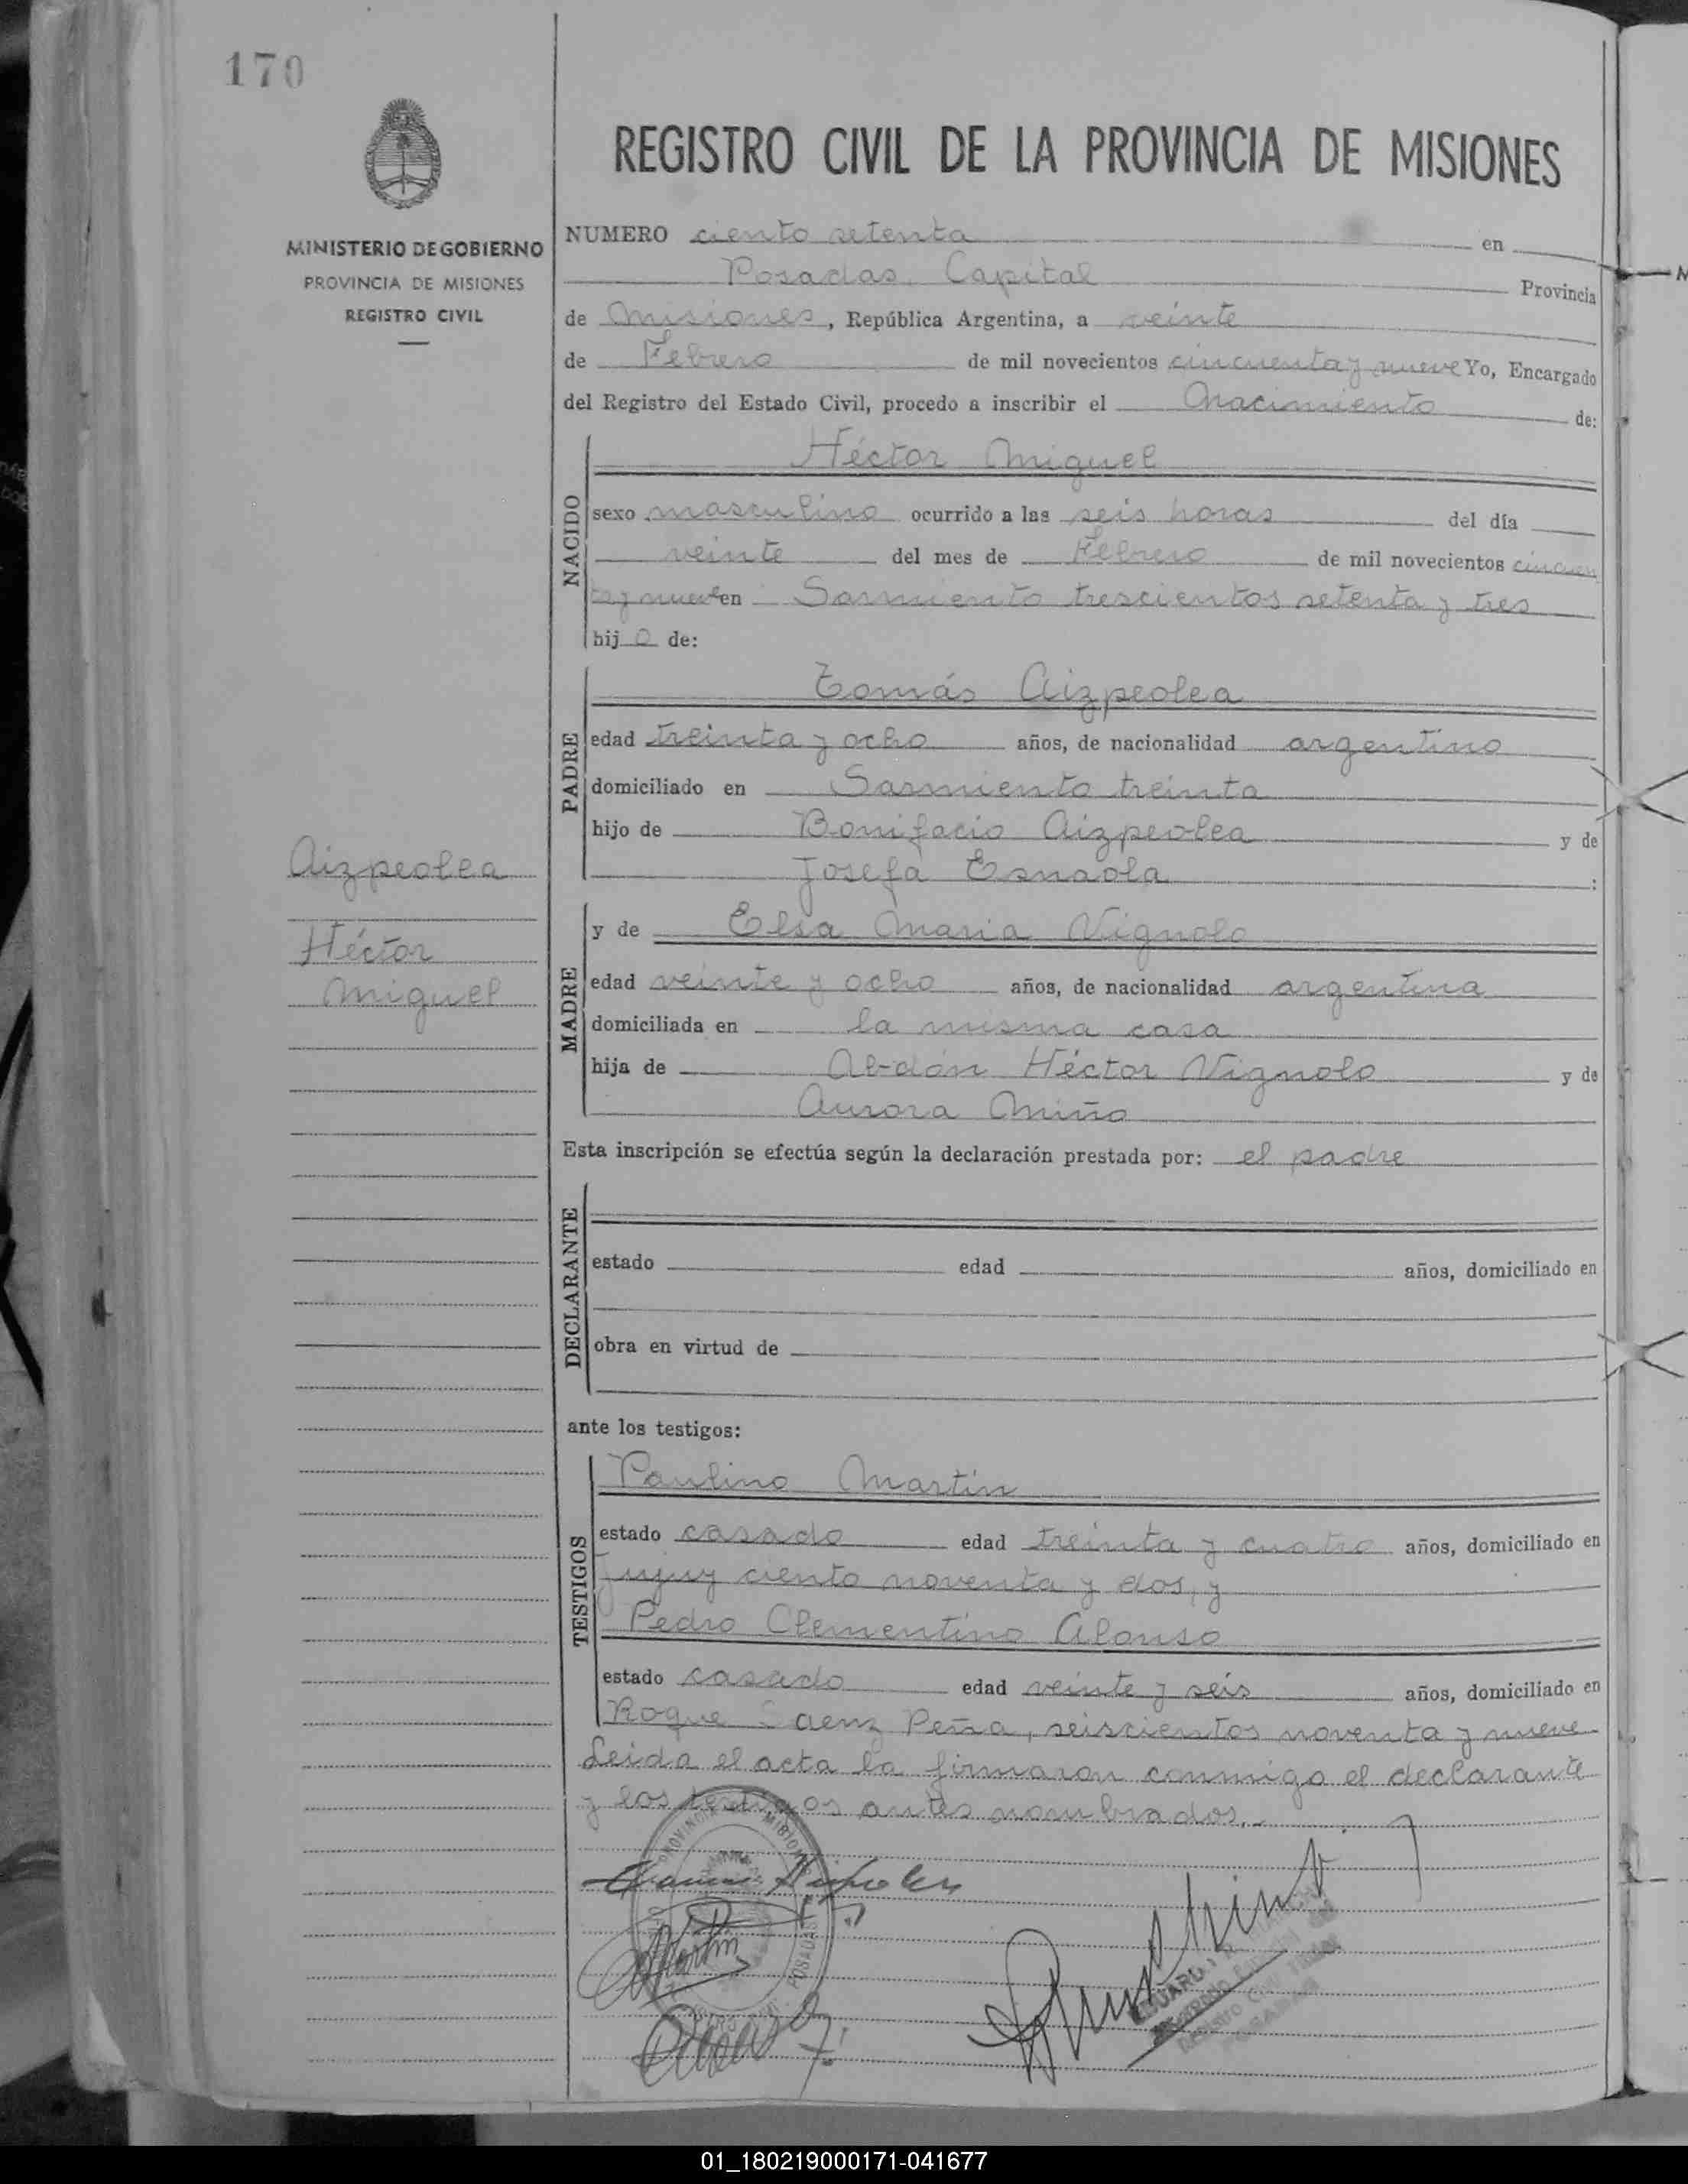 170
REGISTRO CIVIL DE LA PROVINCIA DE MISIONES
MINISTERIO DE GOBIERNO
PROVINCIA DE MISIONES
REGISTRO CIVIL
NUMERO ciento setenta en
Posadas, Capital Provincia
de Misiones, República Argentina, a veinte
de Febrero de mil novecientos cincuenta y nueve Yo, Encargado
del Registro del Estado Civil, procedo a inscribir el Nacimiento de:
NACIDO
Héctor Miguel
sexo masculino ocurrido a las seis horas del día
veinte del mes de Febrero de mil novecientos cincuen
ta y nueve en Sarmiento trescientos setenta y tres
hijo de:
PADRE
Tomás Aizpeolea
edad treinta y ocho años, de nacionalidad argentino
domiciliado en Sarmiento treinta
hijo de Bonifacio Aizpeolea y de
Josefa Esnaola :
Aizpeolea
Héctor
Miguel
MADRE
y de Elsa Maria Vignolo
edad veinte y ocho años, de nacionalidad argentina
domiciliada en la misma casa
hija de Abdón Héctor Vignolo y de
Aurora Miño
Esta inscripción se efectúa según la declaración prestada por: el padre
DECLARANTE
estado edad años, domiciliado en
obra en virtud de
ante los testigos:
TESTIGOS
Paulino Martin
estado casado edad treinta y cuatro años, domiciliado en
Jujuy ciento noventa y dos, y
Pedro Clementino Alonso
estado casado edad veinte y seis años, domiciliado en
Roque Saenz Peña, seiscientos noventa y nueve
Leida el acta la firmaron conmigo el declarante
y los testigos antes nombrados.-
PROVINCIA MISIONES
POSADAS
01_180219000171-041677